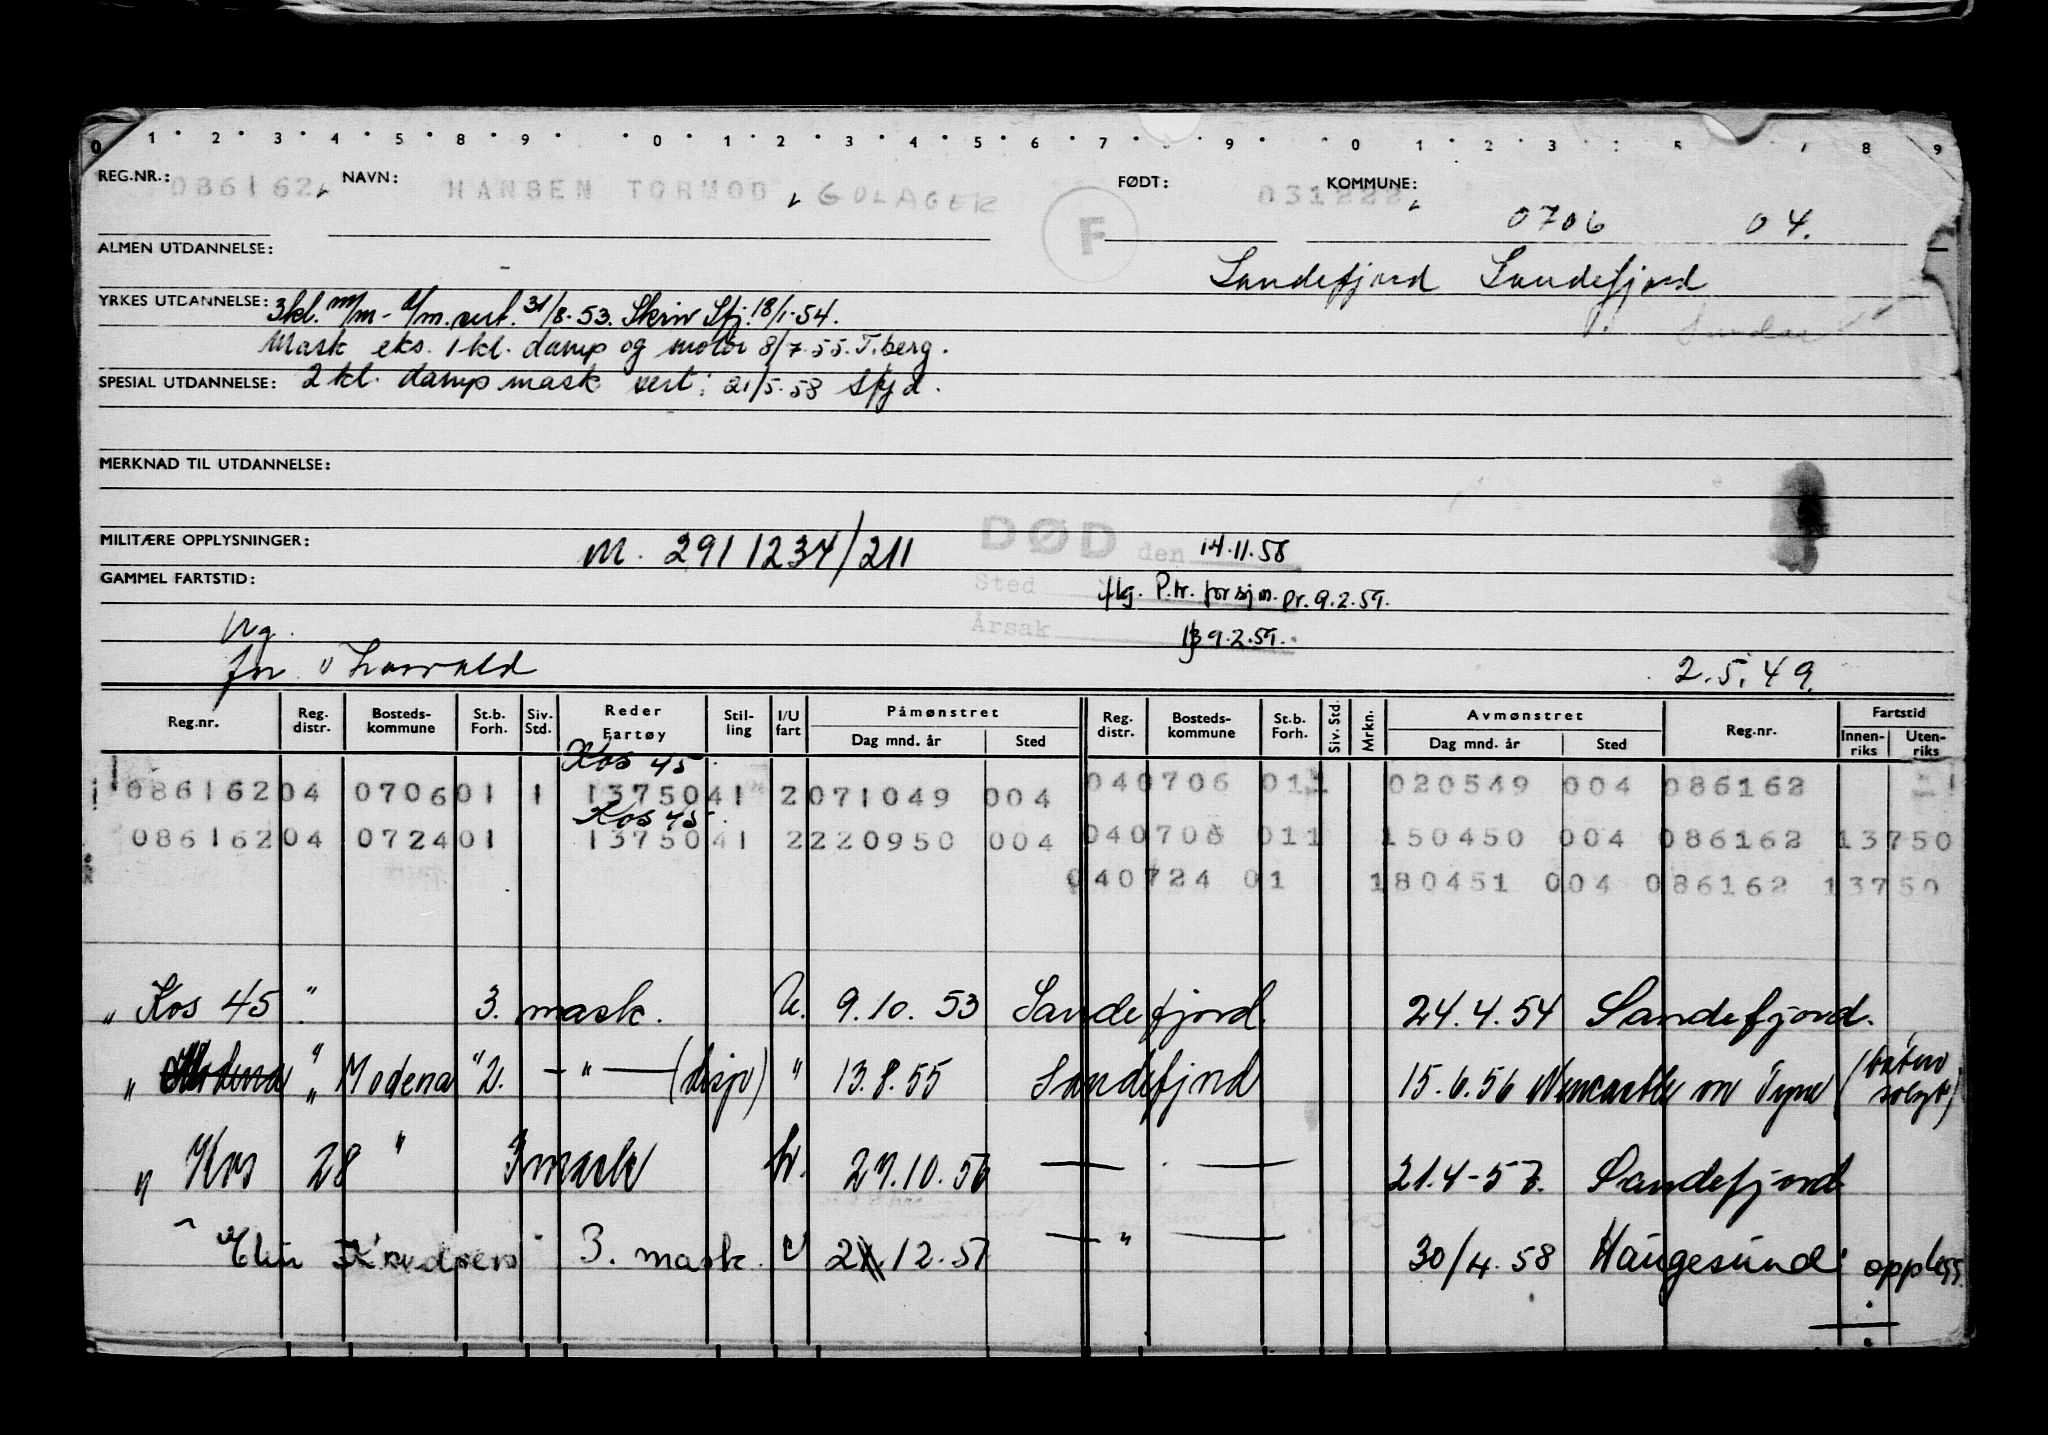 0 1 2 3 4 5 6 8 9 0 1 2 3 4 5 6 7 9 0 1 2 3 5 7 8 9
REG.NR.: 086162 NAVN: HANSEN TORMOD, GOLAGER F FØDT: 031222 KOMMUNE: 0706 04.
ALMEN UTDANNELSE: Sandefjord Sandefjord
YRKES UTDANNELSE: 3kl. m/m - sert. 31/8-53. Skriv Sfj. 18/1-54.
Mask eks. 1kl. damp og motor 8/7.55. T.berg.
SPESIAL UTDANNELSE: 2 kl. damp mask sert: 21/5.58 Sfjd.
MERKNAD TIL UTDANNELSE:
MILITÆRE OPPLYSNINGER: M. 2911234/211 DØD den 14.11.58
GAMMEL FARTSTID: Sted flg. P.tr. for sjøm. pr. 9.2.59.
Ug. Årsak 9.2.59.
fm Thorvald 2.5.49.
Reg.nr. Reg. distr. Bosteds-kommune St.b. Forh. Siv. Std. Reder Fartøy Stil-ling I/U fart Påmønstret Dag mnd. år Sted Reg. distr. Bosteds-kommune St.b. Forh. Siv. Std. Mrkn. Avmønstret Dag mnd. år Sted Reg.nr. Fartstid Innen-riks Uten-riks
Kos 45
086162 04 0706 01 1 13750 41 2 071049 004 04 0706 011 020549 004 086162
Kos 45
086162 04 0724 01 13750 41 2 220950 004 04 0706 011 150450 004 086162 13750
04 0724 01 180451 004 086162 13750
" Kos 45 " 3. mask. U. 9.10.53 Sandefjord. 24.4.54 Sandefjord.
" " Modena "2. - " - (disp) " 13.8.55 Sandefjord 15.6.56 Newcastle on Tyne (båten solgt)
" Kos 28 " 3 mask 27.10.56 — " — 21.4-57. Sandefjord
" Elin Knudsen " 3. mask. U 2 .12.57 — " — 30/4.58 Haugesund oppl.